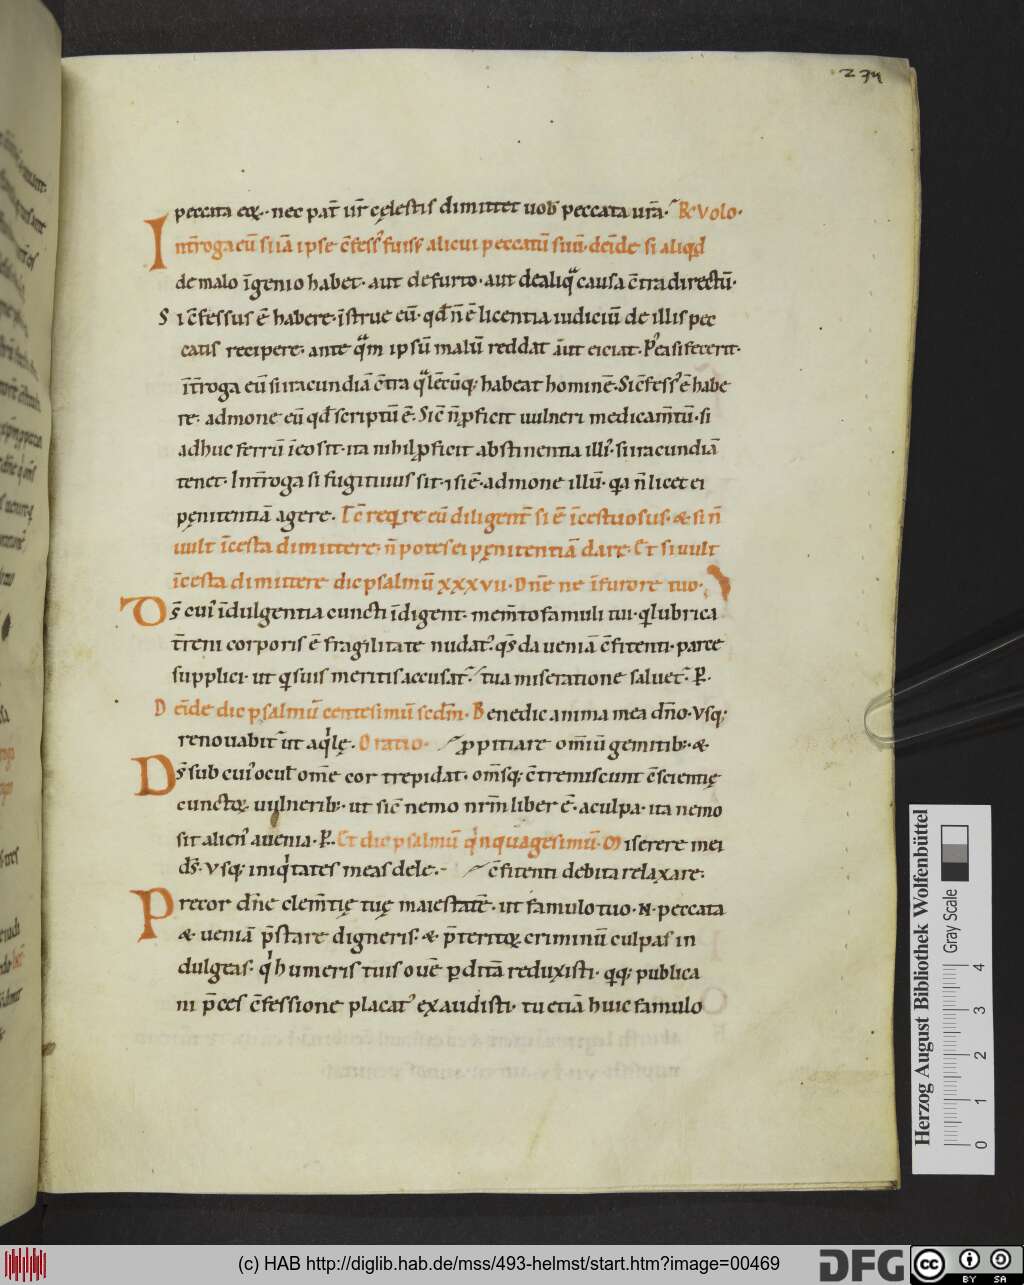 234
peccata eoꝝ· nec pat̄ ur̄ cęlestis dimittet uob᷒ peccata ur̄a· R· Volo·
Int̄roga eū si iā ipse c̄fess᷒ fuiss& alicui peccatū suū· deīde si aliqđ
de malo īgenio habet· aut de furto· aut de aliqͣ causa c̄tra directū·
Si c̄fessus ē habere· īstrue eū· qđ n̄ ē licentia iudiciū de illis pec
catis recipere· ante qͣm ipsū malū reddat aūt eiciat· P᷒ea si fecerit·
īt̄roga eū si iracundiā c̄tra qͣlēcūq; habeat hominē· Si c̄fess᷒ ē habe
re· admone eū qđ scriptū ē· Sic̄ n̄ ꝓficit uulneri medicam̄tū· si
adhuc ferrū īeo sit· ita nihil ꝓficit abstinentia illi᷒· si iracundiā
tenet· Int̄roga si fugitiuus sit· ⁊ si ē· admone illū· qa n̄ licet ei
pęnitentiā agere· Tc̄ reqͥre eū diligent̄ si ē īcestuosus· & si n̄
uult īcesta dimittere· n̄ potes ei pęnitentiā dare· Et si uult
īcesta dimittere dic psalmū xxxvii· Dn̄e ne īfurore tuo·
Ds̄ cui᷒ īdulgentia cuncti īdigent· mem̄to famuli tui· q lubrica
t̄reni corporis ē fragilitate nudat᷒· qs̄ da ueniā c̄fitenti· parce
supplici· ut qͥ suis meritis accusat᷒· tua miseratione saluet᷒· P̄·
Deīde dic psalmū centesimū scd̄m· Benedic anima mea dn̄o· Vsq;
renouabit᷒ ut aqͥlę· Oratio· ꝓpitiare om̄iū gemitib;· &
Ds̄ sub cui᷒ ocul̄ om̄e cor trepidat· om̄sq; c̄tremiscunt c̄scientię
cunctoꝝ uulnerib;· ut sic̄ nemo nr̄m liber ē· a culpa· ita nemo
sit alien᷒ a uenia· P̄· Et dic psalmū qͥnquagesimū· Miserere mei
ds̄· Vsq; iniqͥtates meas dele·- c̄fitenti debita relaxare·
Precor dn̄e clem̄tię tuę maiestatē· ut famulo tuo· N· peccata
& ueniā p̄stare digneris· & p̄teritoꝝ criminū culpas in
dulgeas· qͥ humeris tuis ouē ꝑditā reduxisti· qͥq; publica
ni p̄ces c̄fessione placat᷒ exaudisti· tu etiā huic famulo
Herzog August Bibliothek Wolfenbüttel
Gray Scale
0 1 2 3 4
(c) HAB http://diglib.hab.de/mss/493-helmst/start.htm?image=00469
DFG
cc BY SA